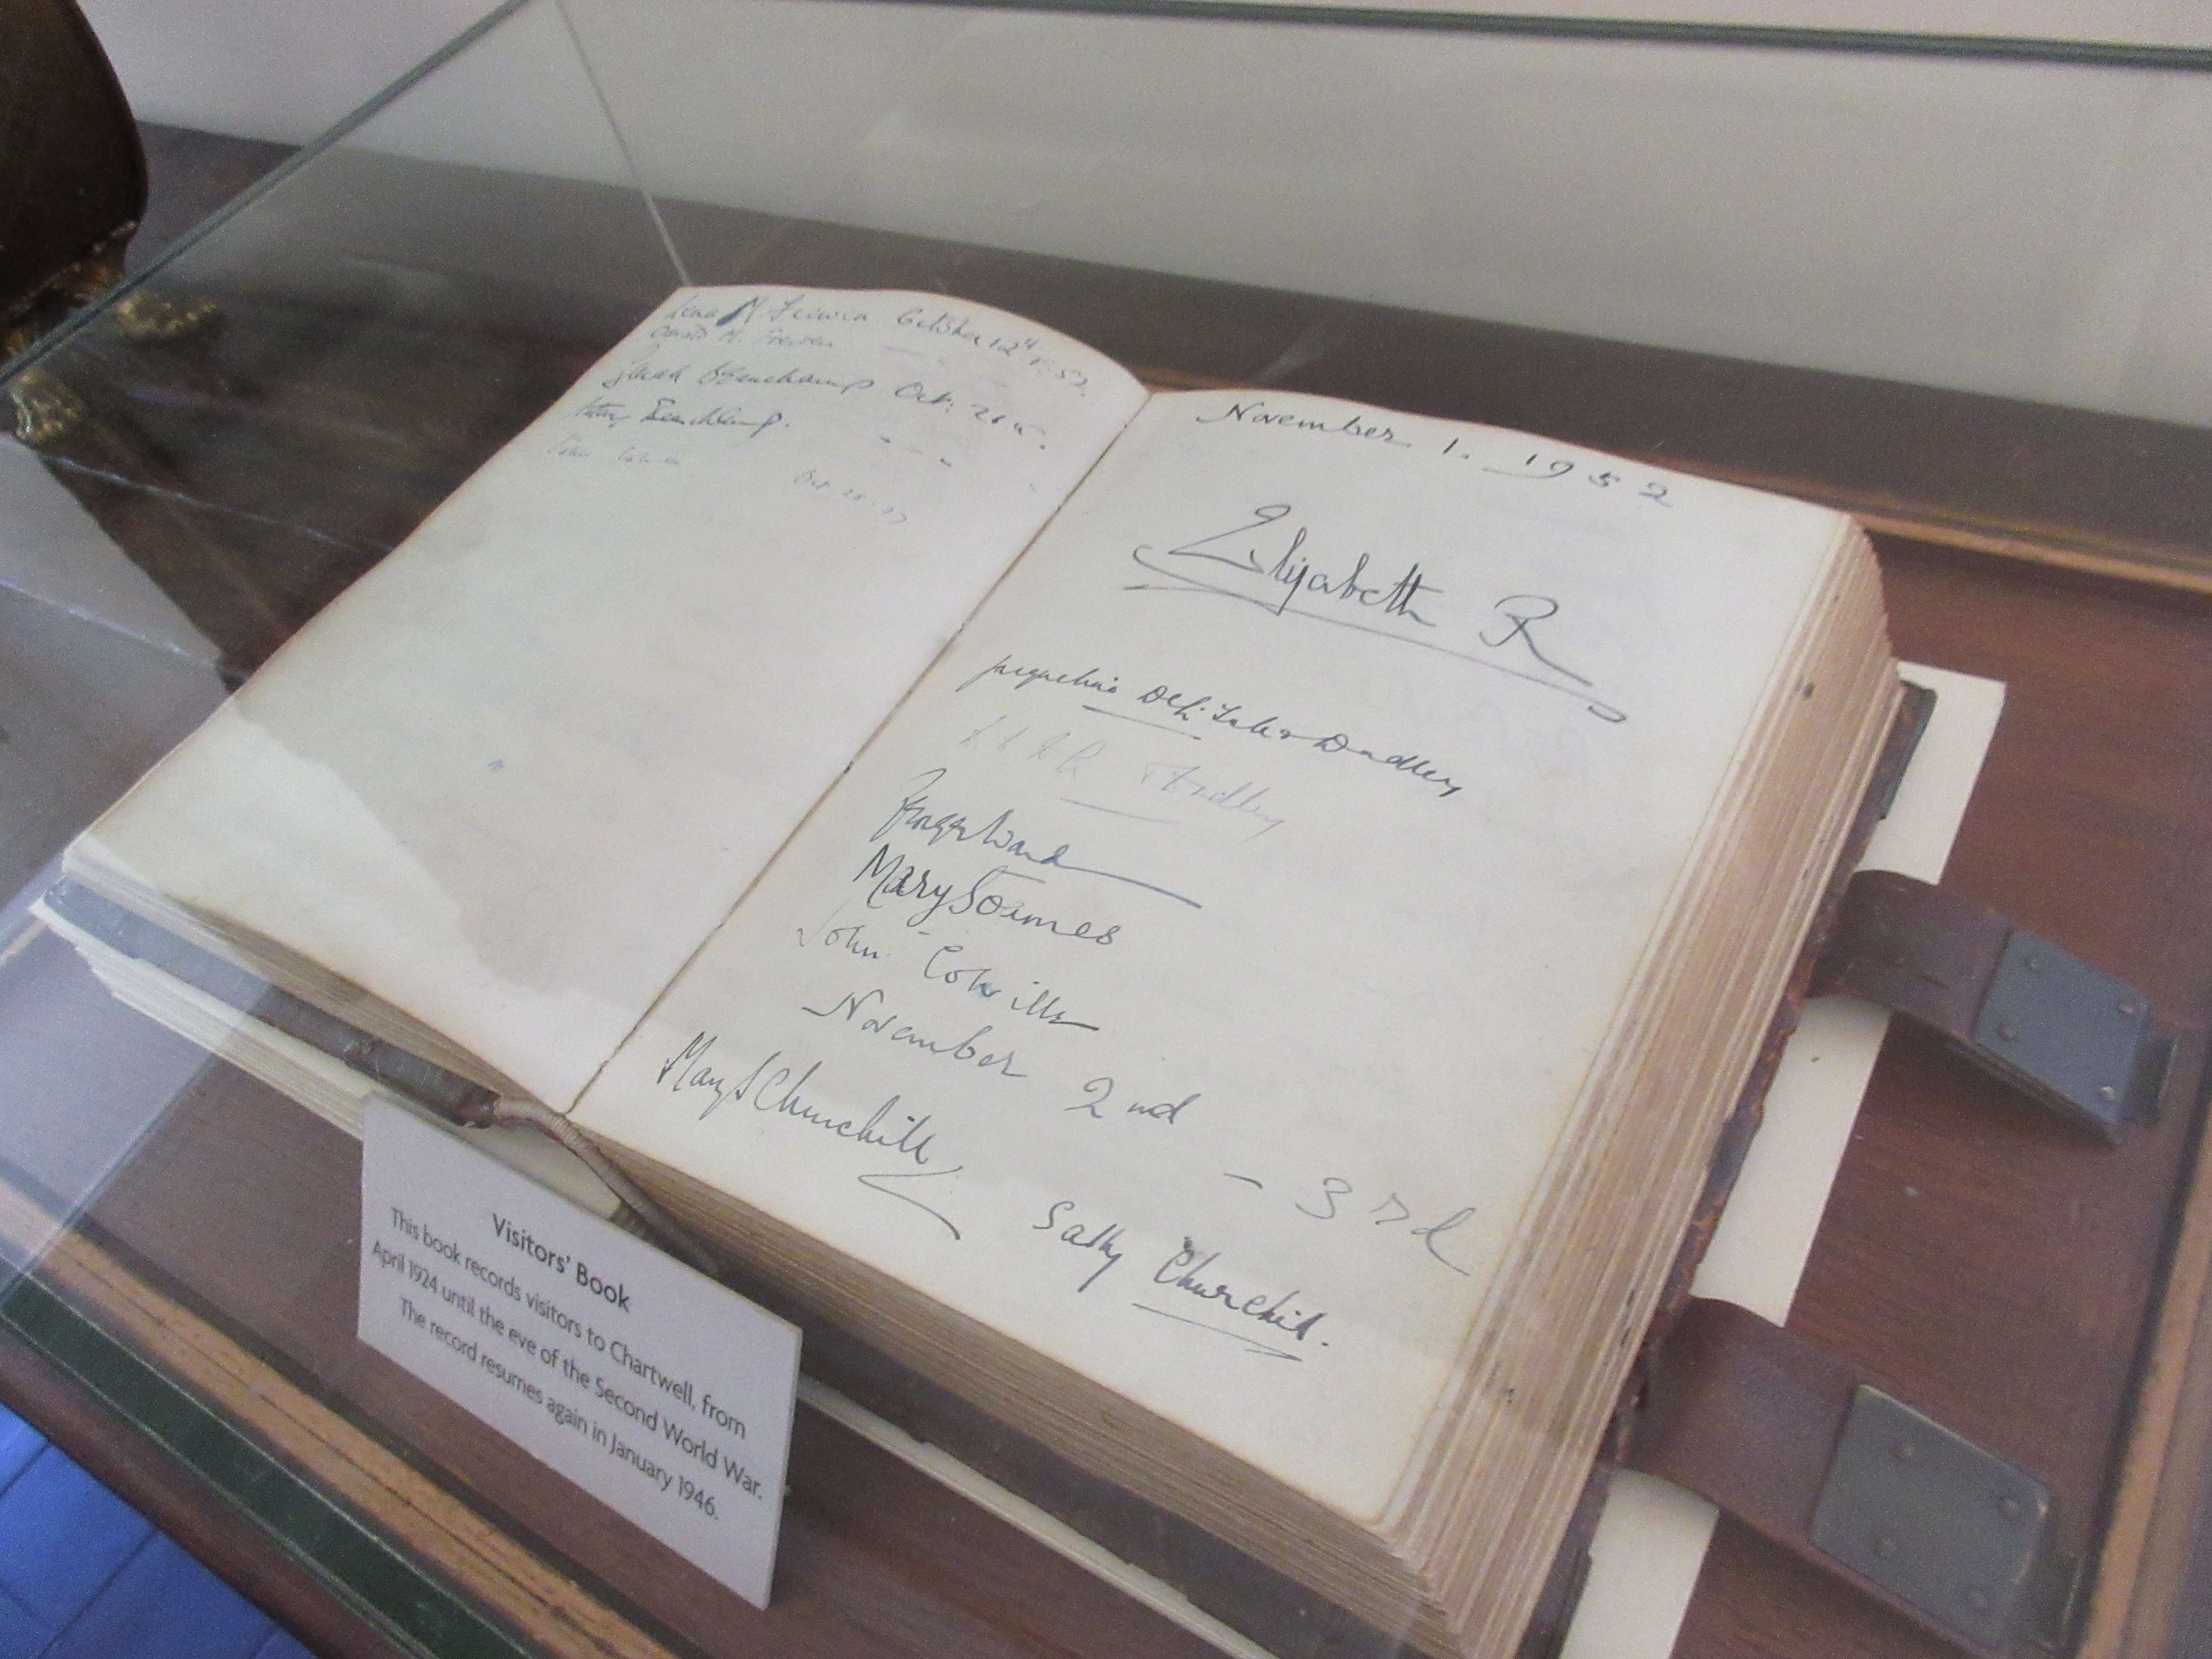 M. Frewen. October 12th
M. Frewen
Sarah Beauchamp Oct: 26
Beauchamp.
John
Oct
November 1. 1952
Elizabeth R
Jacqueline Dudley
Dudley
Mary Soames
John Colville
November 2nd
Mary S Churchill
- 3rd
Sally Churchill.
Visitors' Book
This book records visitors to Chartwell, from
April 1924 until the eve of the Second World War.
The record resumes again in January 1946.